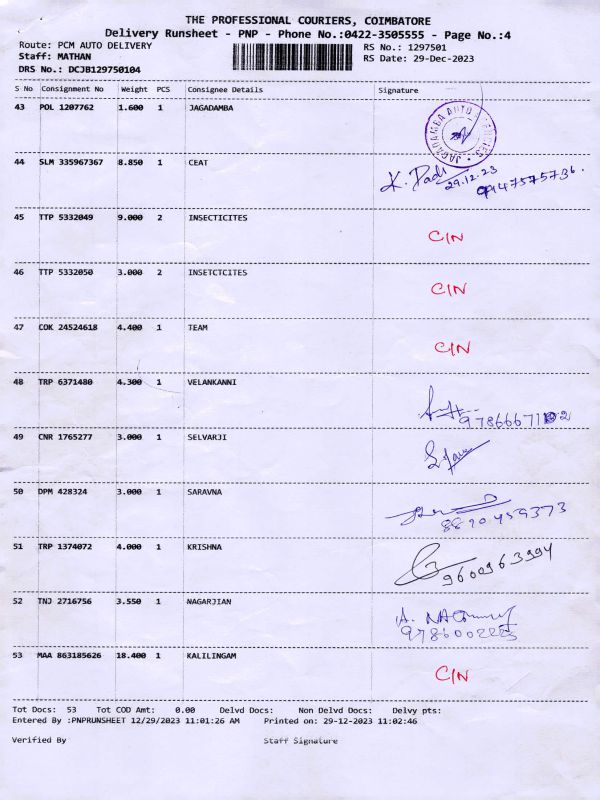 THE PROFESSIONAL COURIERS, COIMBATORE
Delivery Runsheet - PNP - Phone No.:0422-3505555 - Page No.:4
Route: PCM AUTO DELIVERY RS No.: 1297501
Staff: MATHAN RS Date: 29-Dec-2023
DRS No.: DCJB129750104
S No Consignment No Weight PCS Consignee Details Signature
43 POL 1207762 1.600 1 JAGADAMBA
JAGADAMBA AUTO
44 SLM 335967367 8.850 1 CEAT
K. Dadi 29.12.23
45 TTP 5332049 9.000 2 INSECTICITES
C/N
46 TTP 5332050 3.000 2 INSETCTCITES
C/N
47 COK 24524618 4.400 1 TEAM
C/N
48 TRP 6371480 4.300 1 VELANKANNI
49 CNR 1765277 3.000 1 SELVARJI
50 DPM 428324 3.000 1 SARAVNA
8870459373
51 TRP 1374072 4.000 1 KRISHNA
9600963994
52 TNJ 2716756 3.550 1 NAGARJIAN
53 MAA 863185626 18.400 1 KALILINGAM
C/N
Tot Docs: 53 Tot COD Amt: 0.00 Delvd Docs: Non Delvd Docs: Delvy pts:
Entered By :PNPRUNSHEET 12/29/2023 11:01:26 AM Printed on: 29-12-2023 11:02:46
Verified By Staff Signature